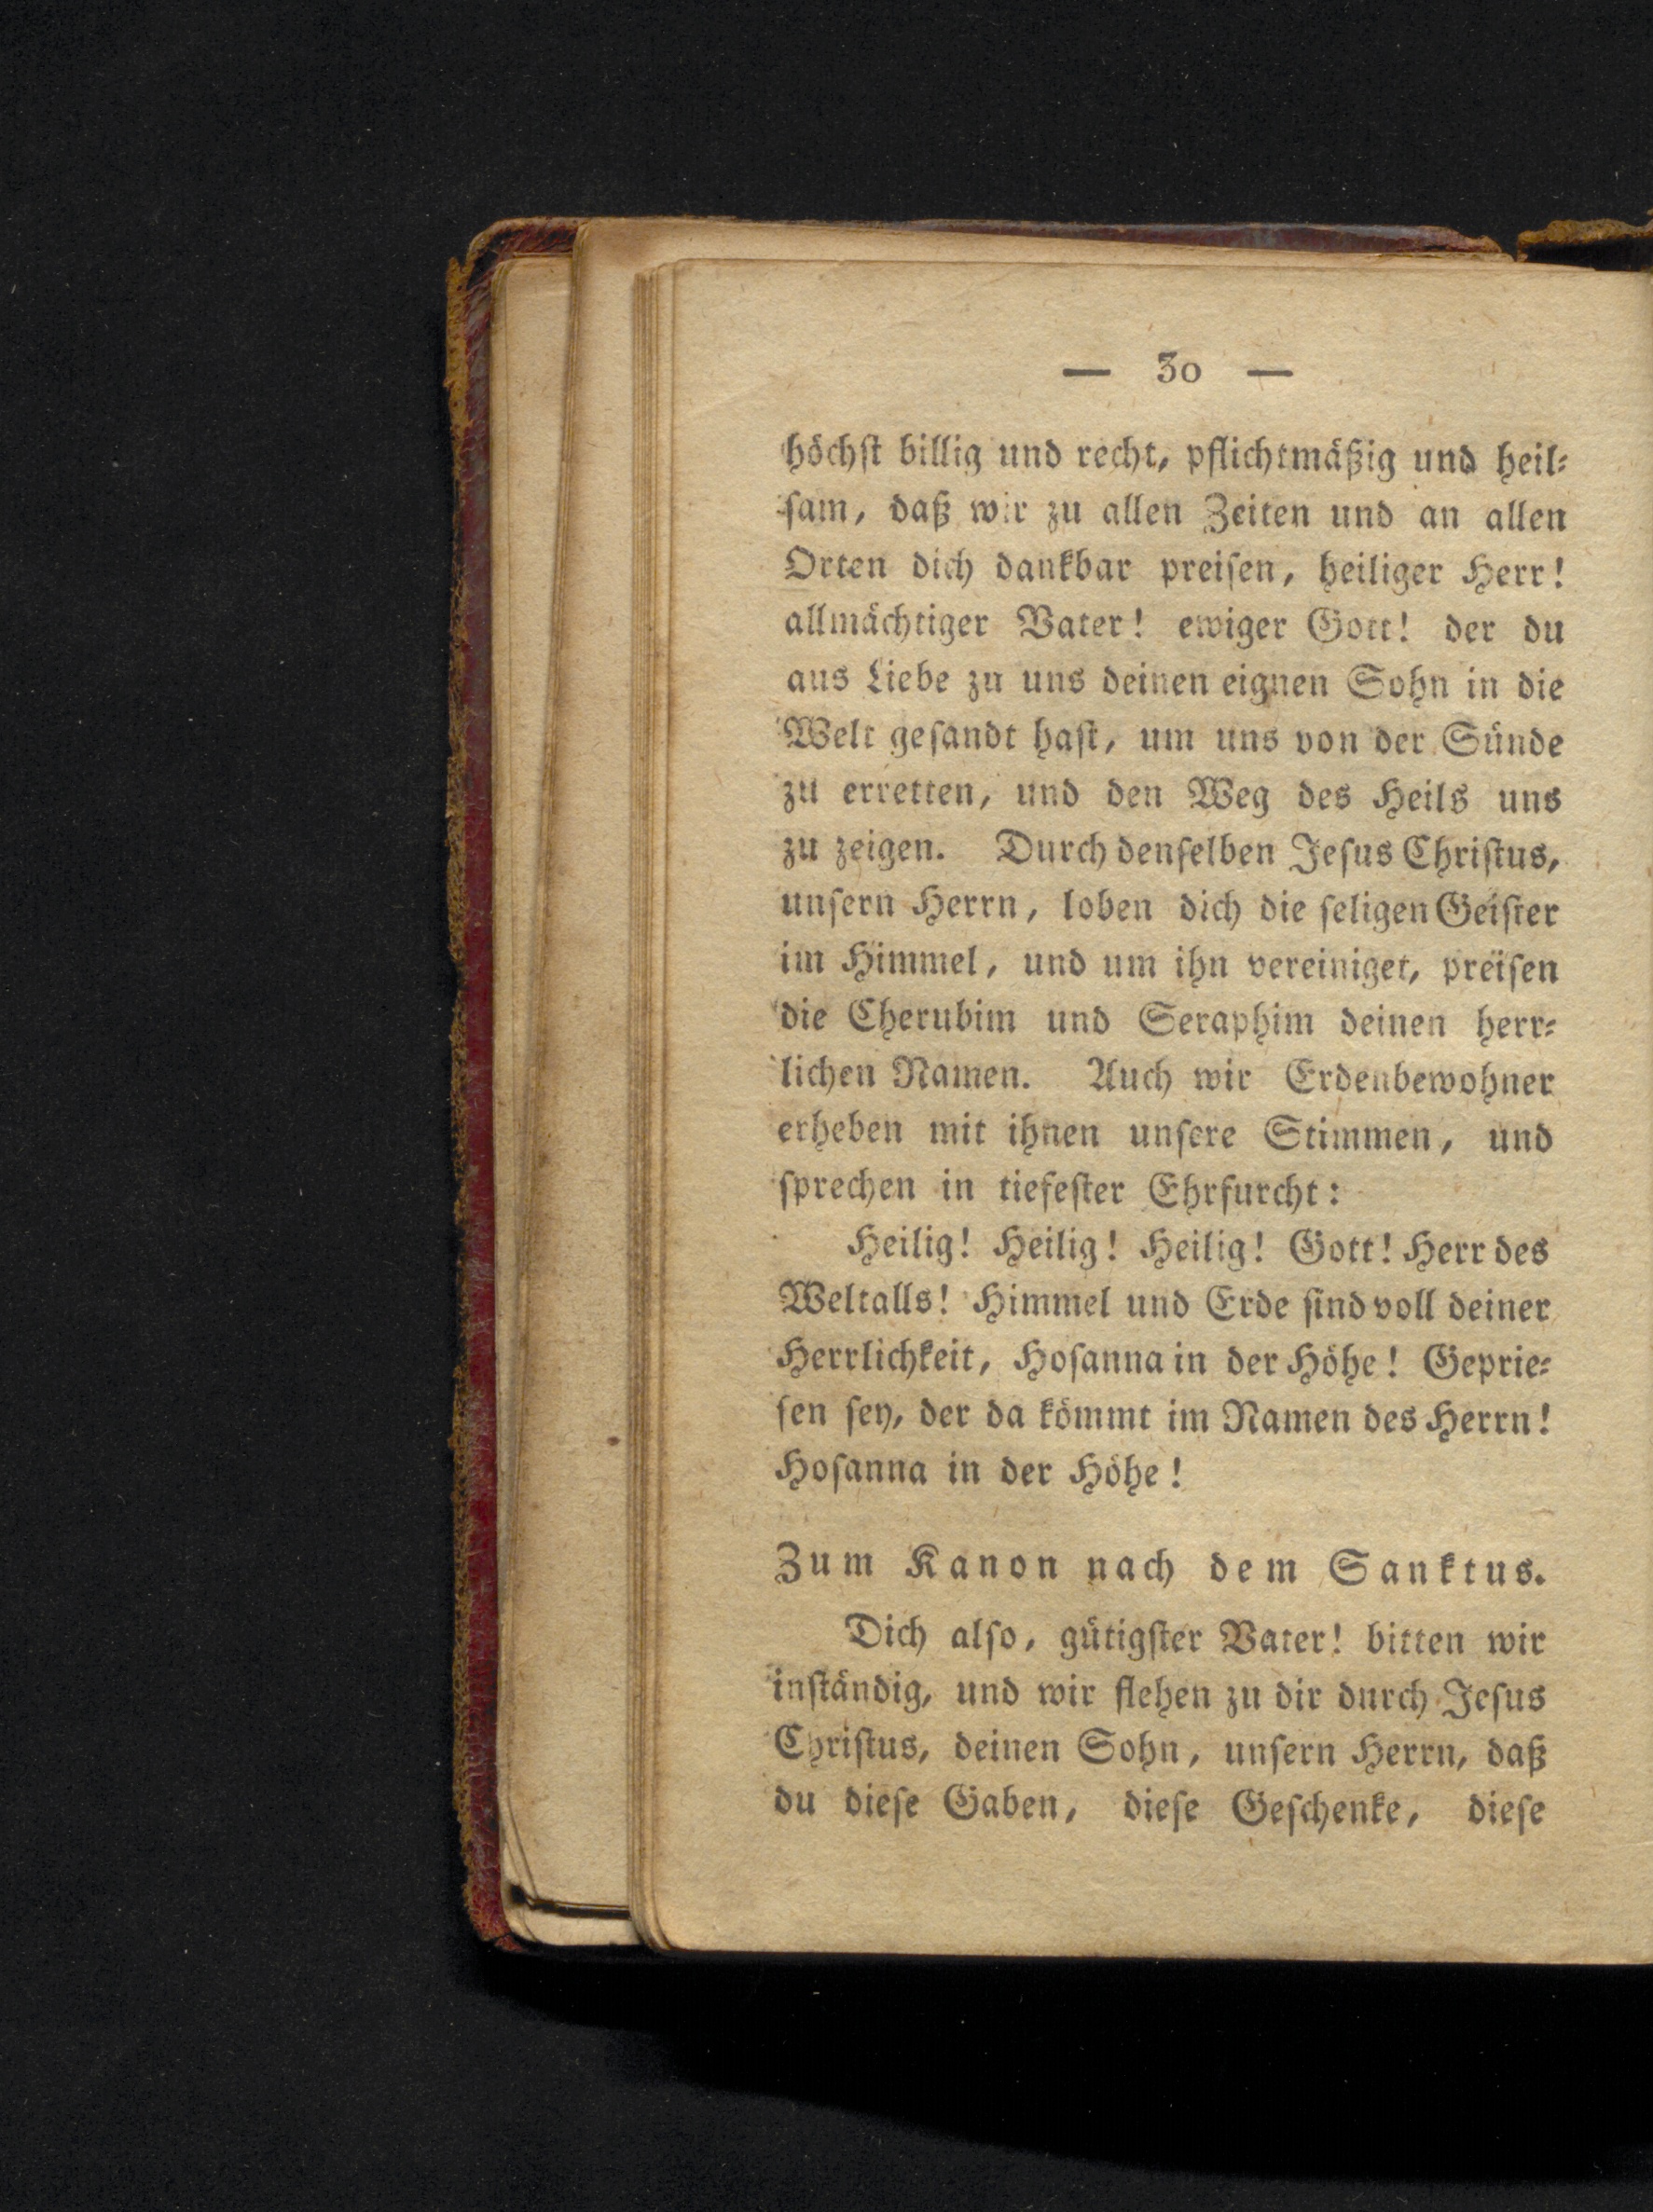 — 30 —
höchſt billig und recht, pflichtmäßig und heil⸗
ſam, daß wir zu allen Zeiten und an allen
Orten dich dankbar preiſen, heiliger Herr!
allmächtiger Vater! ewiger Gott! der du
aus Liebe zu uns deinen eignen Sohn in die
Welt geſandt haſt, um uns von der Sünde
zu erretten, und den Weg des Heils uns
zu zeigen. Durch denſelben Jeſus Chriſtus,
unſern Herrn, loben dich die ſeligen Geiſter
im Himmel, und um ihn vereiniget, preiſen
die Cherubim und Seraphim deinen herr⸗
lichen Namen. Auch wir Erdenbewohner
erheben mit ihnen unſere Stimmen, und
ſprechen in tiefeſter Ehrfurcht:
Heilig! Heilig! Heilig! Gott! Herr des
Weltalls! Himmel und Erde ſind voll deiner
Herrlichkeit, Hoſanna in der Höhe! Geprie⸗
ſen ſey, der da kömmt im Namen des Herrn!
Hoſanna in der Höhe!
Zum Kanon nach dem Sanktus.
Dich alſo, gütigſter Vater! bitten wir
inſtändig, und wir flehen zu dir durch Jeſus
Chriſtus, deinen Sohn, unſern Herrn, daß
du dieſe Gaben, dieſe Geſchenke, dieſe